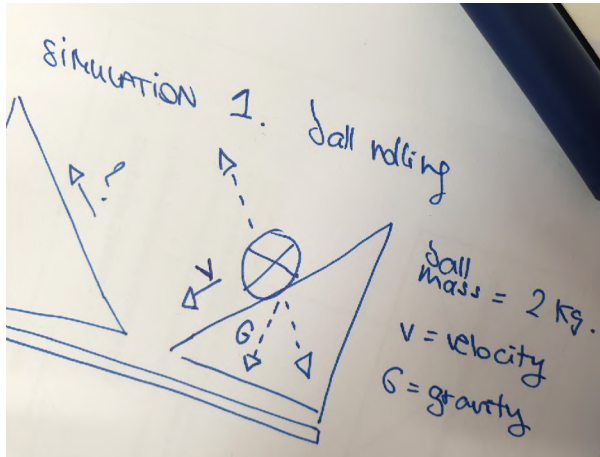 SIMULATION 1. Ball rolling
?
V
G
Ball
mass = 2 kg.
V = velocity
G = gravity